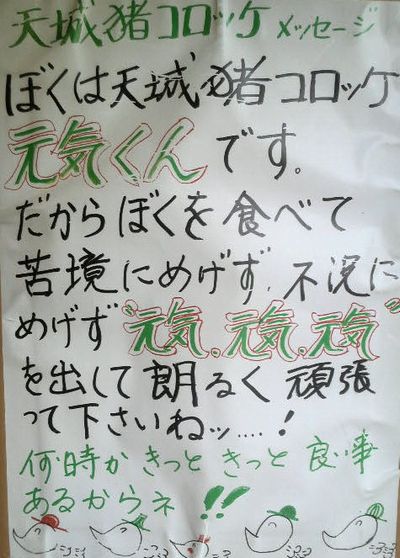 天城猪コロッケ メッセージ
ぼくは天城猪コロッケ
元気くんです。
だからぼくを食べて
苦境にめげず、不況に
めげず"元気、元気、元気"
を出して朗るく頑張
って下さいねッ....!
何時かきっときっと良い事
あるからネ!!